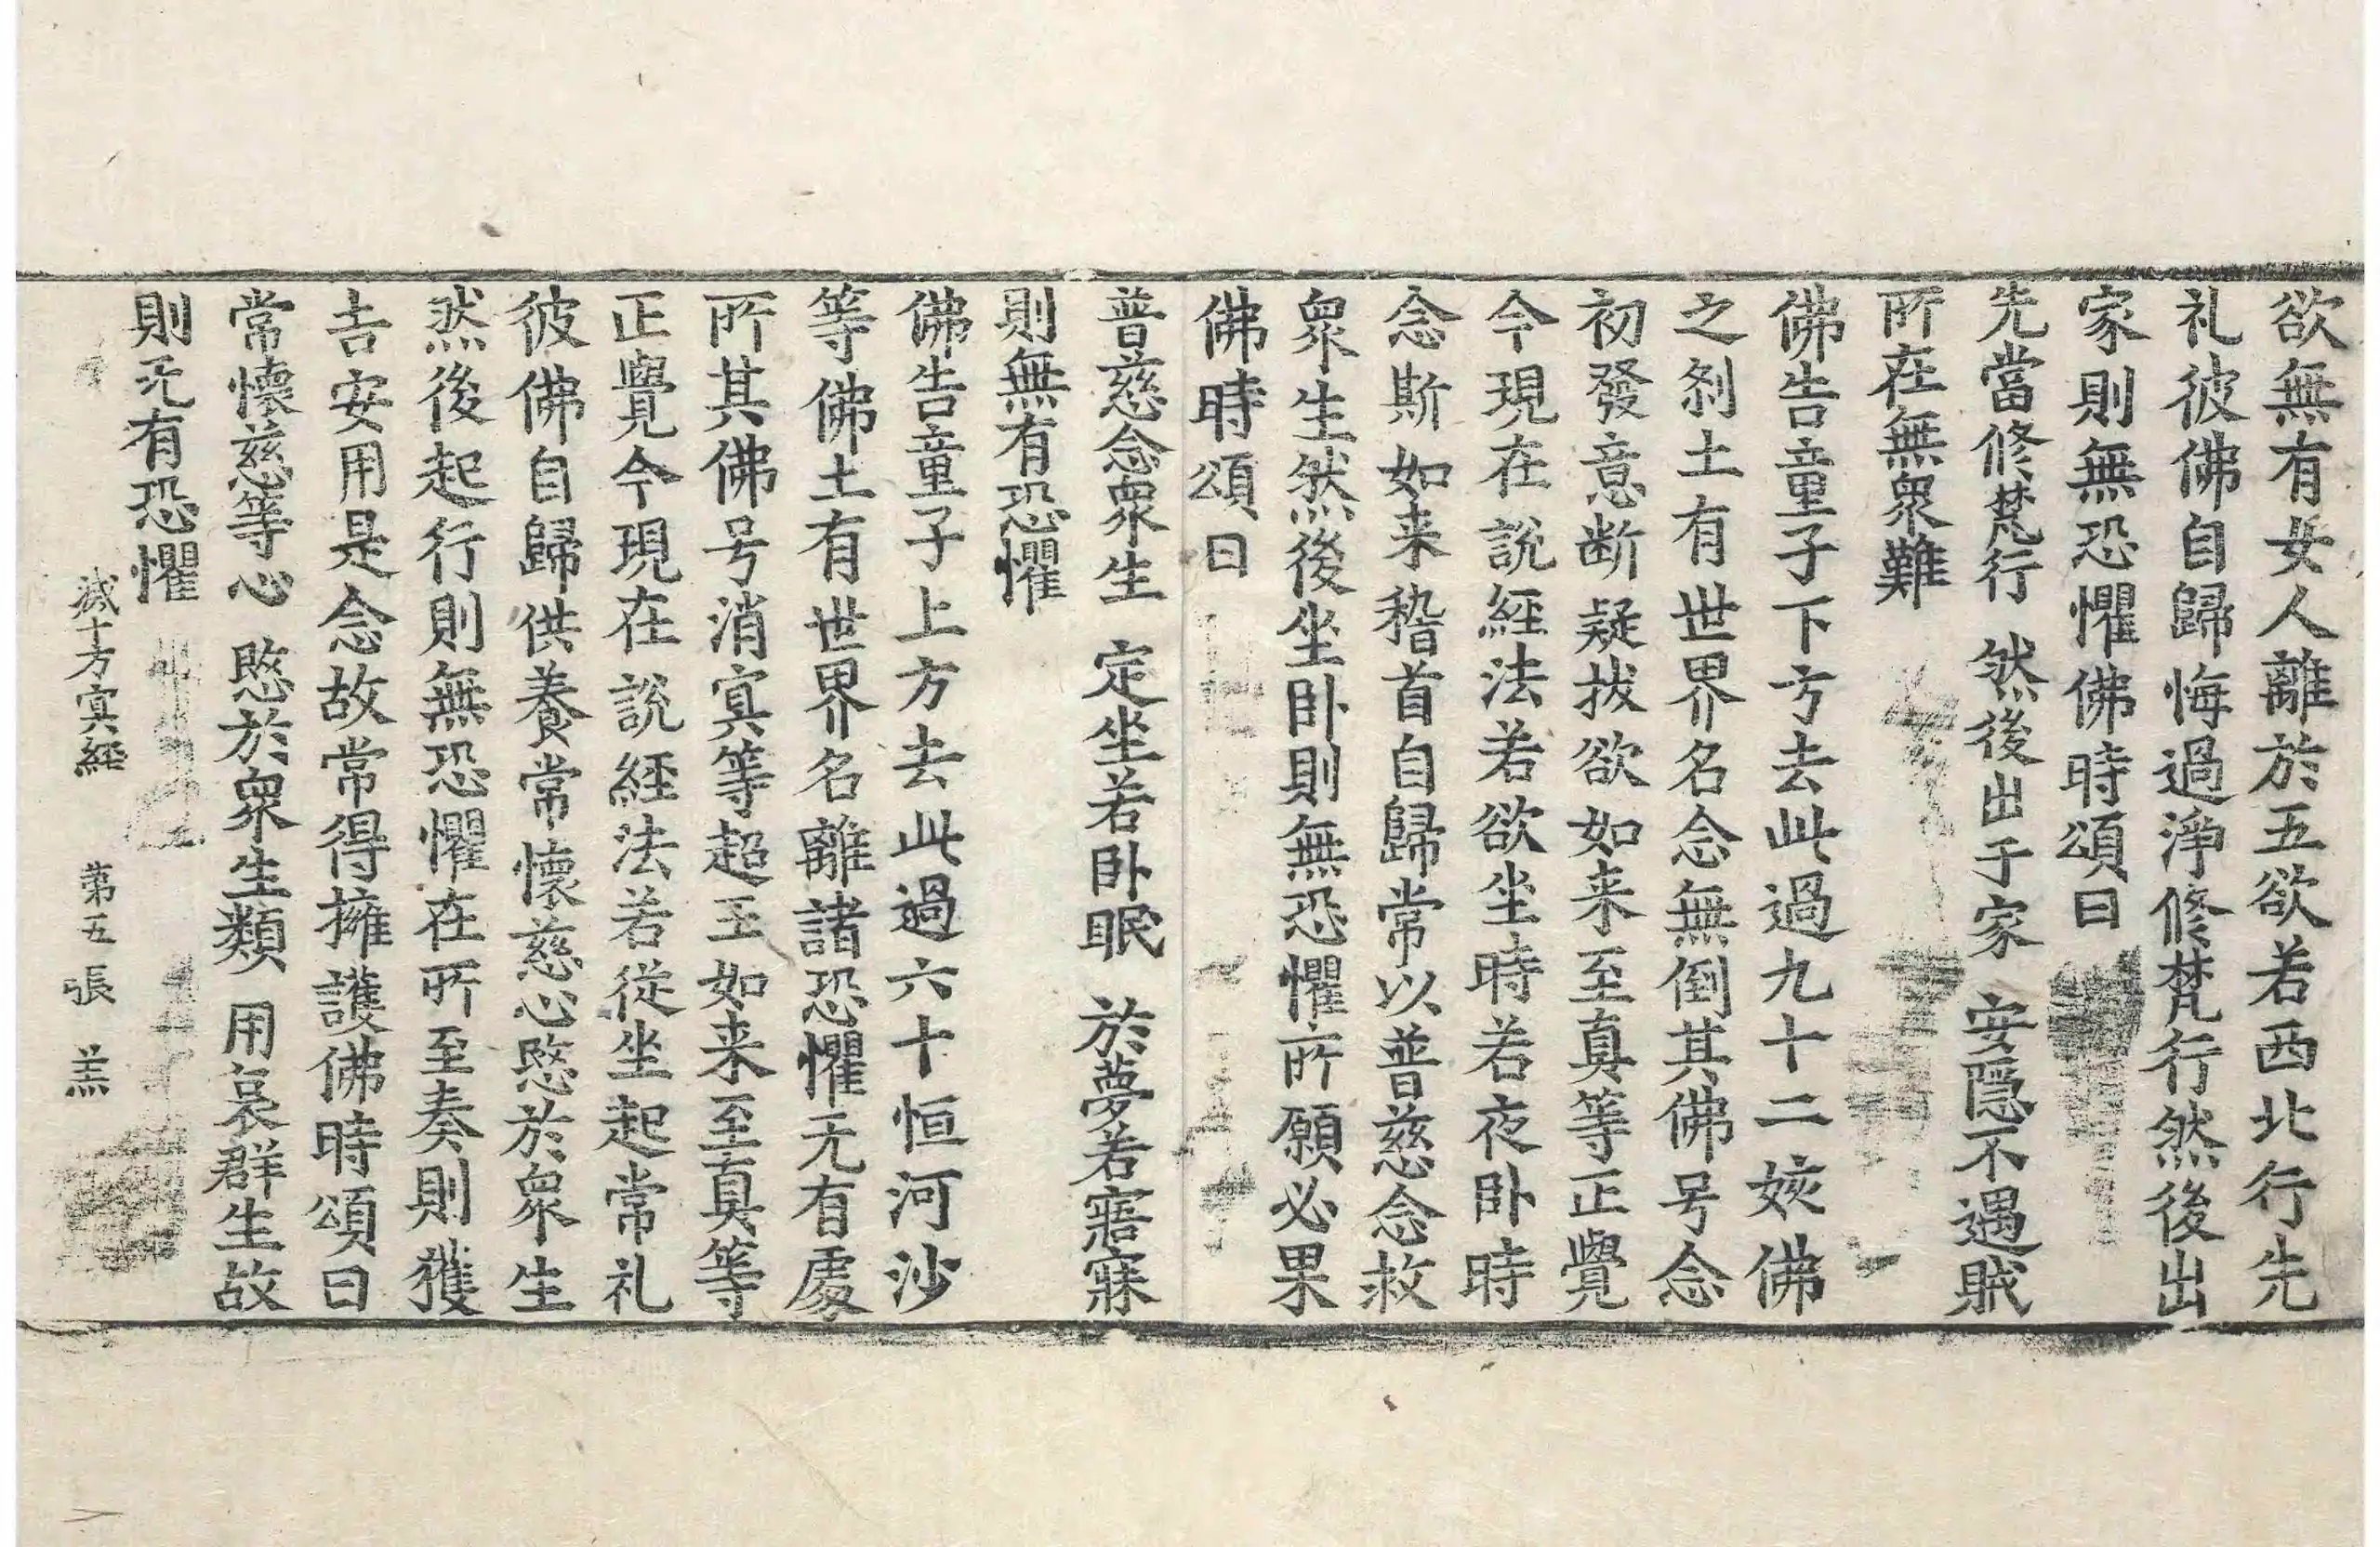 欲無有女人離於五欲若西北行先
礼彼佛自歸悔過淨修梵行然後出
家則無恐懼佛時頌曰
先當修梵行　然後出于家　安隱不遇賊
所在無衆難
佛告童子下方去此過九十二姟佛
之刹土有世界名念無倒其佛号念
初發意断疑拔欲如来至真等正覺
今現在說經法若欲坐時若夜卧時
念斯如来稽首自歸常以普慈念救
衆生然後坐卧則無恐懼所願必果
佛時頌曰
普慈念衆生　定坐若卧眠　於夢若寤寐
則無有恐懼
佛告童子上方去此過六十恒河沙
等佛土有世界名離諸恐懼无有處
所其佛号消冥等超王如来至真等
正覺今現在說經法若從坐起常礼
彼佛自歸供養常懷慈心愍於衆生
然後起行則無恐懼在所至奏則獲
吉安用是念故常得擁護佛時頌曰
常懷慈等心　愍於衆生類　用哀群生故
則无有恐懼
滅十方冥經　第五張　羔